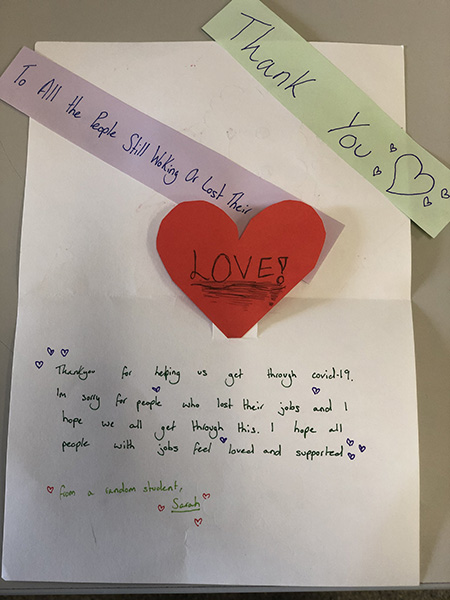 Thank
You
To All the People Still Woking Or Lost Their
LOVE!
Thankyou for helping us get through covid-19.
Im sorry for people who lost their jobs and I
hope we all get through this. I hope all
people with jobs feel loved and supported
from a random student,
Sarah